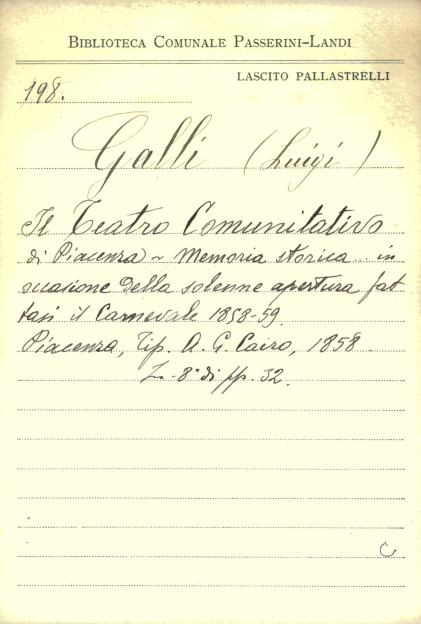 BIBLIOTECA COMUNALE PASSERINI-LANDI
LASCITO PALLASTRELLI
198.
Galli (Luigi)
Il Teatro Comunitativo
di Piacenza ~ Memoria storica.. in
occasione della solenne apertura fat
tasi il Carnevale 1858-59.
Piacenza, Tip. A. G. Cairo, 1858.
In-8° di pp. 32.
C